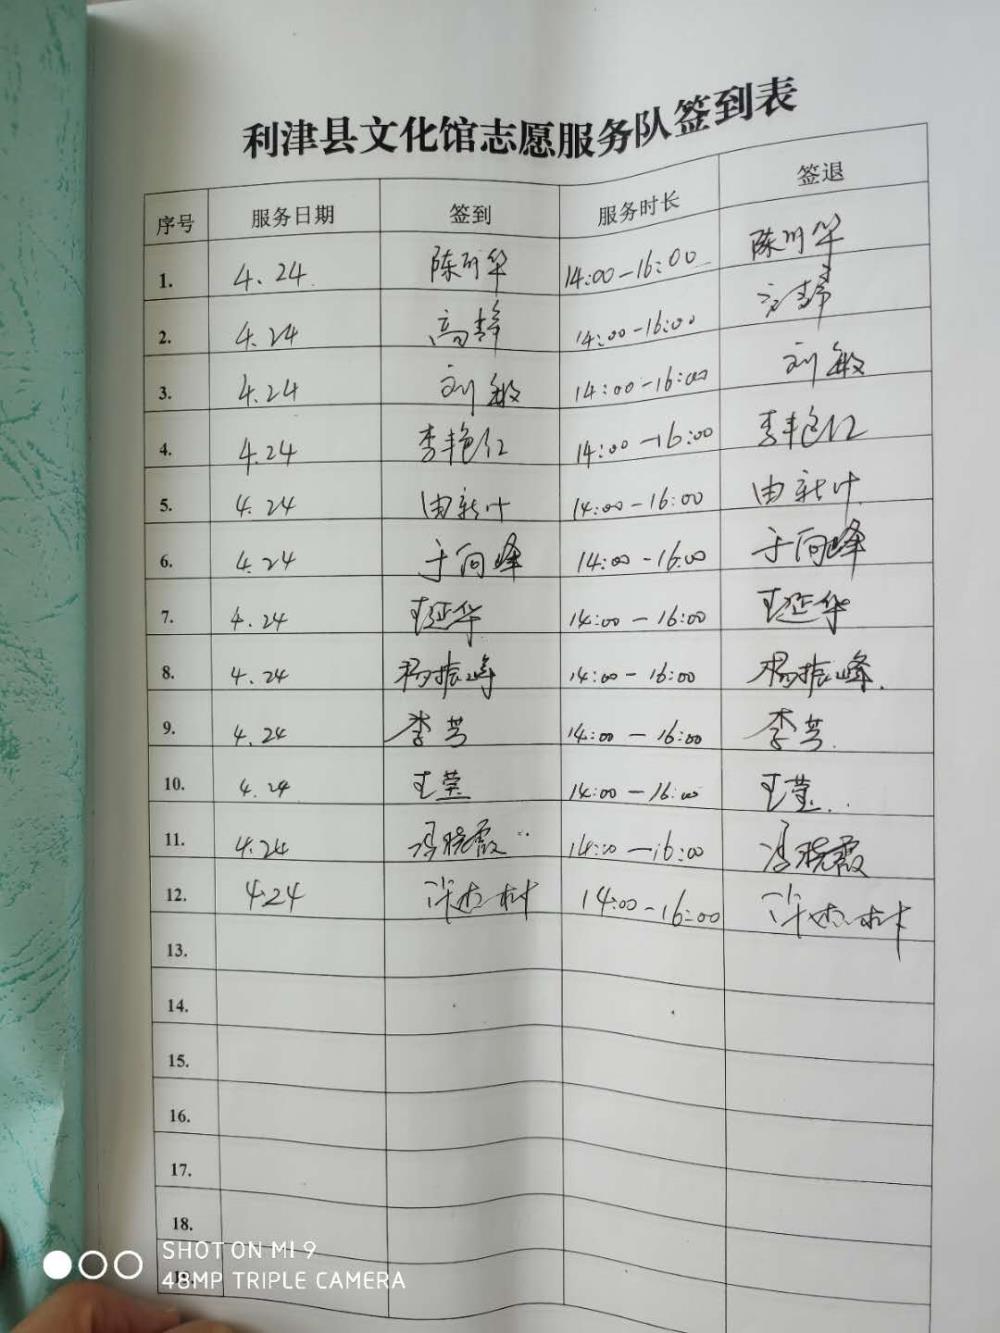 利津县文化馆志愿服务队签到表
序号 服务日期 签到 服务时长 签退
1. 4.24 陈 华 14:00-16:00 陈 华
2. 4.24 高静 14:00-16:00 高静
3. 4.24 刘敏 14:00-16:00 刘敏
4. 4.24 李艳红 14:00-16:00 李艳红
5. 4.24 由新叶 14:00-16:00 由新叶
6. 4.24 于向峰 14:00-16:00 于向峰
7. 4.24 王延华 14:00-16:00 王延华
8. 4.24 杨振峰 14:00-16:00 杨振峰
9. 4.24 李芳 14:00-16:00 李芳
10. 4.24 王莹 14:00-16:00 王莹
11. 4.24 冯晓霞 14:00-16:00 冯晓霞
12. 4.24 14:00-16:00
13.
14.
15.
16.
17.
18.
SHOT ON MI 9
48MP TRIPLE CAMERA